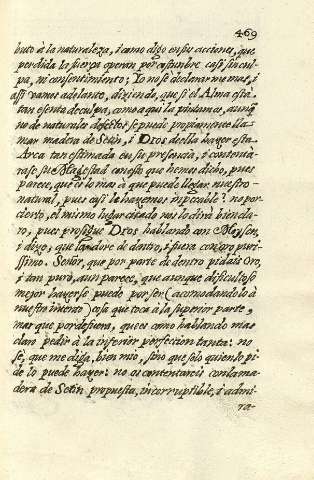 469
buto à la naturaleza, i como digo en sus acciones, que
perdida la fuerça operan por costumbre casi sin cul-
pa, ni consentimiento; Yo no se declararme mas, i
assi vamos adelante, diziendo, que si el Alma està
tan esenta de culpa, como aqui la pintamos, aunq
no de naturales defectos se puede propiamente lla-
mar madera de Setin, i Dios della hazer esta
Arca tan estimada en su presencia, i contenta-
rase su Magestad con esto que hemos dicho, pues
parece, que es lo mas à que puede llegar nuestro
natural, pues casi le hazemos inpecable? no por
cierto, el mismo lugar citado nos lo dirà bien cla-
ro, pues prosigue Dios hablando con Moysen,
i dize, que la dore de dentro, i fuera con oro puri-
ssimo. Señor, que por parte de dentro pidais Oro,
i tan puro, aun parece, que aunque dificultoso
mejor hazerse puede por ser (acomodandolo à
nuestro intento) cosa que toca a la superior parte,
mas que por defuera, que es como hablando mas
claro pedir à la inferior perfeccion tanta: no
se, que me diga, bien mio, sino que solo quien lo pi-
de lo puede hazer: no os contentareis con la ma-
dera de Setin propuesta, incorruptible, i admi-
ra-